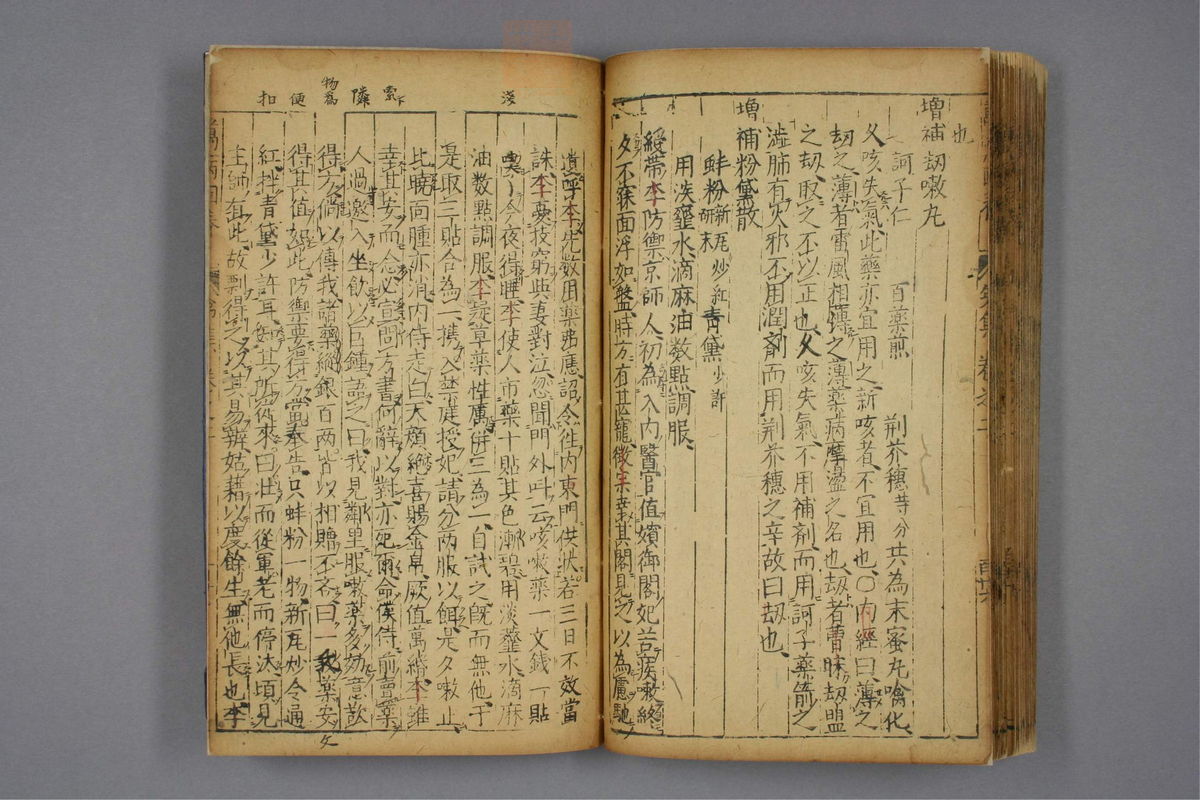 也
增補 劫嗽丸
訶子仁 百藥煎 荊芥穗等分共為末蜜丸噙化
久咳失氣此藥亦宜用之新咳者不宜用也〇內經曰薄之
劫之薄者雷風相薄之薄藥病摩盪之名也劫者曹昧劫盟
之劫取之不以正也久咳失氣不用補劑而用訶子藥箭之
澁肺有火邪不用潤劑而用荊芥穗之辛故曰劫也
增補粉黛散
蚌粉新瓦炒紅研末 青黛少許
用淡虀水滴麻油数點調服
綬帶李防禦京師人初為入內醫官值嬪御閣妃苦痰嗽終
夕不寐面浮如盤時方有甚寵徽宗幸其閣見之以為慮馳
淺
索
隣
物為
便
扣
遣呼李先数用藥弗應詔令往內東門供狀若三日不效當
誅李憂技窮與妻對泣忽聞門外叫云咳嗽藥一文錢一貼
喫了今夜得睡李使人市藥十貼其色漸碧用淡虀水滴麻
油数點調服李疑草藥性厲併三為二自試之既而無他于
是取三貼合為一攜入禁庭授妃請分兩服以餌是夕嗽止
比曉面腫亦消內侍走白天顏絕喜賜金帛厥值萬緡李雖
幸其安而念必宣問方書何辭以對亦殂爾命僕侍前賣藥
人過邀入坐飲以巨鍾語之曰我見鄰里服嗽藥多効意歆
得方倘以傳我諸藥緡銀百兩皆以相贈不吝曰一我藥安
得其值如此防禦要得方當奉告只蚌粉一物新瓦炒令通
紅拌青黛少許耳叩其所從來曰壯而從軍老而停汰頃見
主帥有此故剽得之以其易辦姑藉以度餘生無他長也李